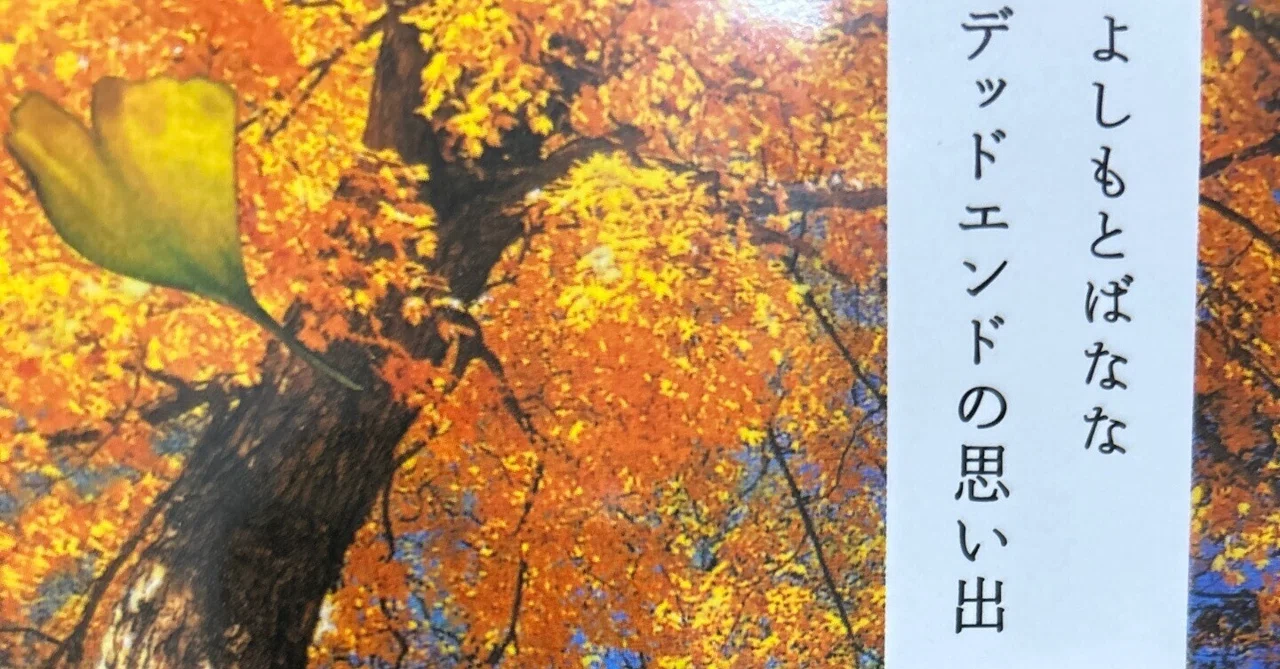 よしもとばなな
デッドエンドの思い出